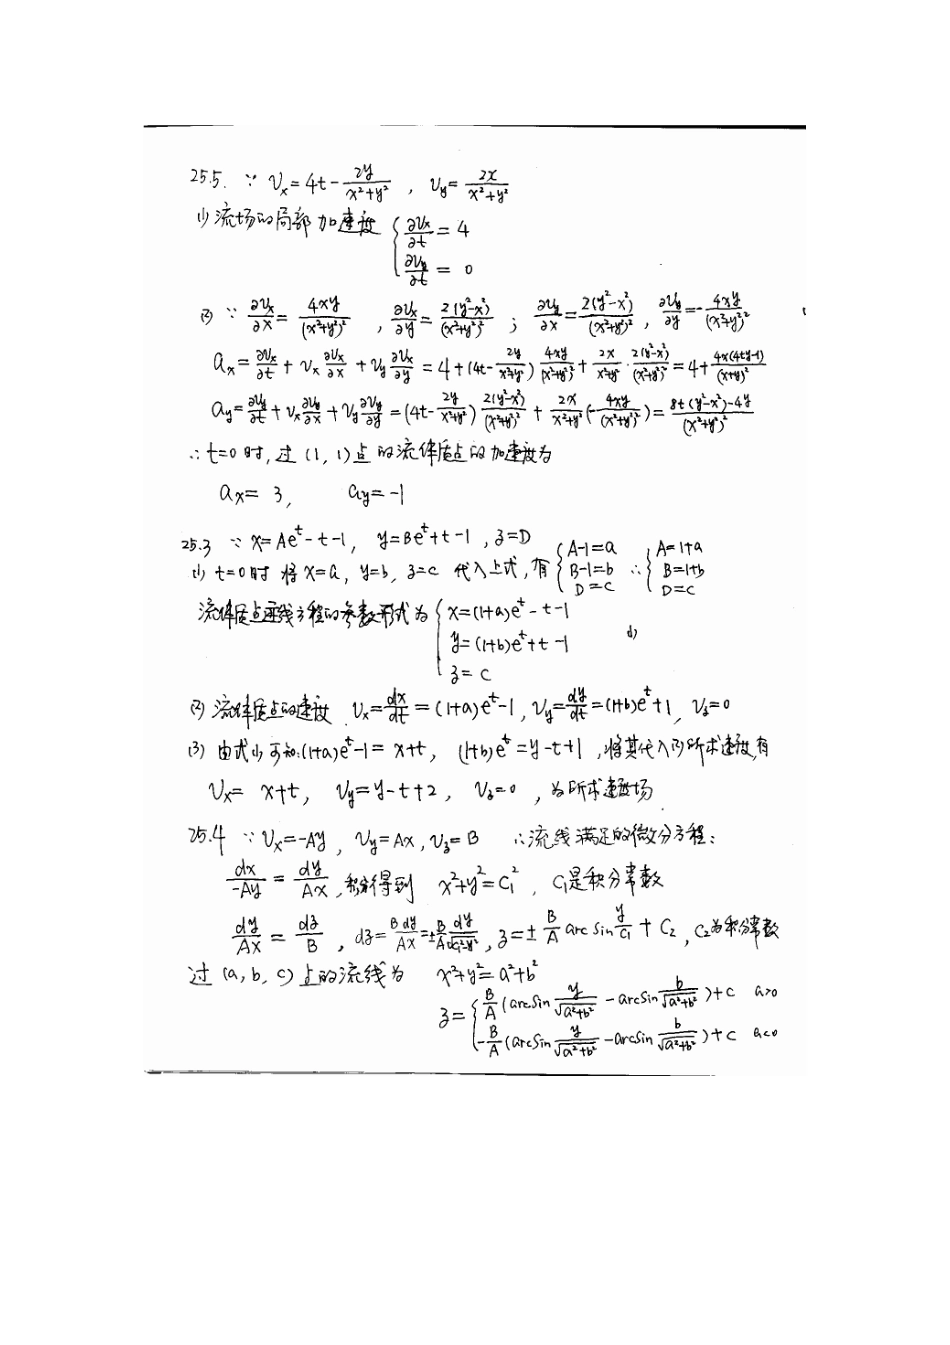 25.5. ∵ Vx=4t-2y/(x²+y²) , Vy=2x/(x²+y²)
(1) 流场的局部加速度 { ∂Vx/∂t = 4
∂Vy/∂t = 0
(2) ∵ ∂Vx/∂x = 4xy/(x²+y²)² , ∂Vx/∂y = 2(y²-x²)/(x²+y²)² ; ∂Vy/∂x = 2(y²-x²)/(x²+y²)² , ∂Vy/∂y = -4xy/(x²+y²)²
ax = ∂Vx/∂t + Vx ∂Vx/∂x + Vy ∂Vx/∂y = 4+(4t-2y/(x²+y²)) 4xy/(x²+y²)² + 2x/(x²+y²) · 2(y²-x²)/(x²+y²)² = 4+ 4x(4ty-1)/(x²+y²)²
ay = ∂Vy/∂t + Vx ∂Vy/∂x + Vy ∂Vy/∂y = (4t-2y/(x²+y²)) 2(y²-x²)/(x²+y²)² + 2x/(x²+y²) (-4xy/(x²+y²)²) = (8t(y²-x²)-4y)/(x²+y²)²
∴ t=0时, 过 (1, 1)点的流体质点的加速度为
ax= 3, ay=-1
25.3 ∵ x=Ae^t-t-1, y=Be^t+t-1, z=D
(1) t=0时 将 x=a, y=b, z=c 代入上式, 有 { A-1=a B-1=b D=c ∴ { A=1+a B=1+b D=c
流体质点迹线方程的参数形式为 { x=(1+a)e^t-t-1
y=(1+b)e^t+t-1 (1)
z=c
(2) 流体质点的速度 Vx=dx/dt=(1+a)e^t-1, Vy=dy/dt=(1+b)e^t+1, Vz=0
(3) 由式(1)可知:(1+a)e^t-1= x+t, (1+b)e^t=y-t+1, 将其代入(2)所求速度,有
Vx= x+t, Vy=y-t+2, Vz=0 , 为所求速度场
25.4 ∵ Vx=-Ay, Vy=Ax, Vz=B ∴流线满足的微分方程:
dx/-Ay = dy/Ax, 积分得到 x²+y²=C₁² , C₁是积分常数
dy/Ax = dz/B , dz= B dy/Ax = ± B/A dy/√(C₁²-y²), z=± B/A arc sin y/C₁ + C₂, C₂为积分常数
过 (a, b, c) 上的流线为 x²+y²=a²+b²
z= { B/A (arcsin y/√(a²+b²) - arcsin b/√(a²+b²) )+c a>0
-B/A (arcsin y/√(a²+b²) - arcsin b/√(a²+b²) )+c a<0